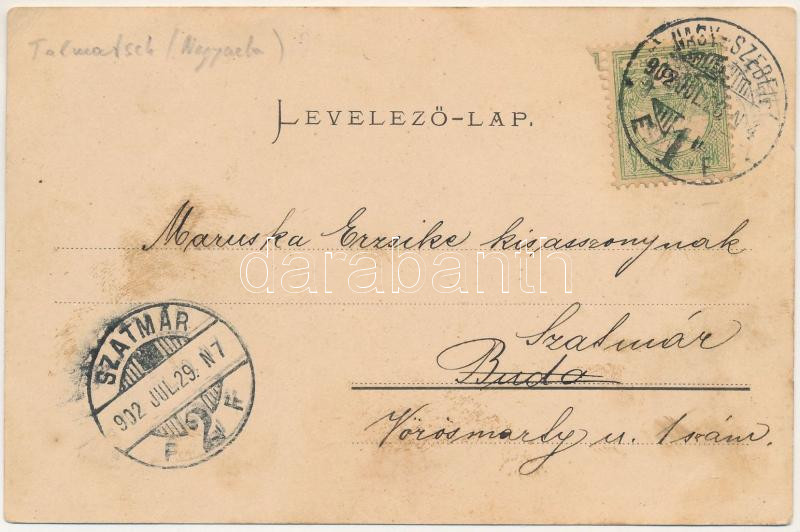 Talmatsch (Nagyada)
LEVELEZŐ-LAP.
NAGY-SZEBEN
902 JUL. N4
E F
Maruska Erzsike kisasszonynak
darabanth
SZATMÁR
902 JUL.29. N7
F 2 F
Szatmár
Buda
Vörösmarty u. 1 szám.